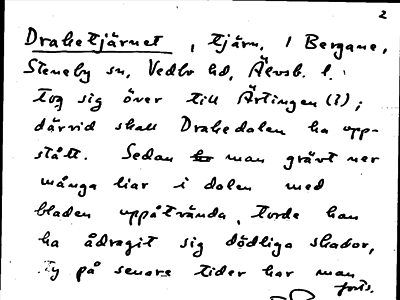 2
Draketjärnet, tjärn, i Bergane,
Steneby sn, Vedbo hd, Älvsb. l.
tog sig över till Ärtingen (?);
därvid skall Drakedalen ha upp-
stått. Sedan man grävt ner
många liar i dalen med
bladen uppåtvända, torde han
ha ådragit sig dödliga skador,
ty på senare tider har man
forts.